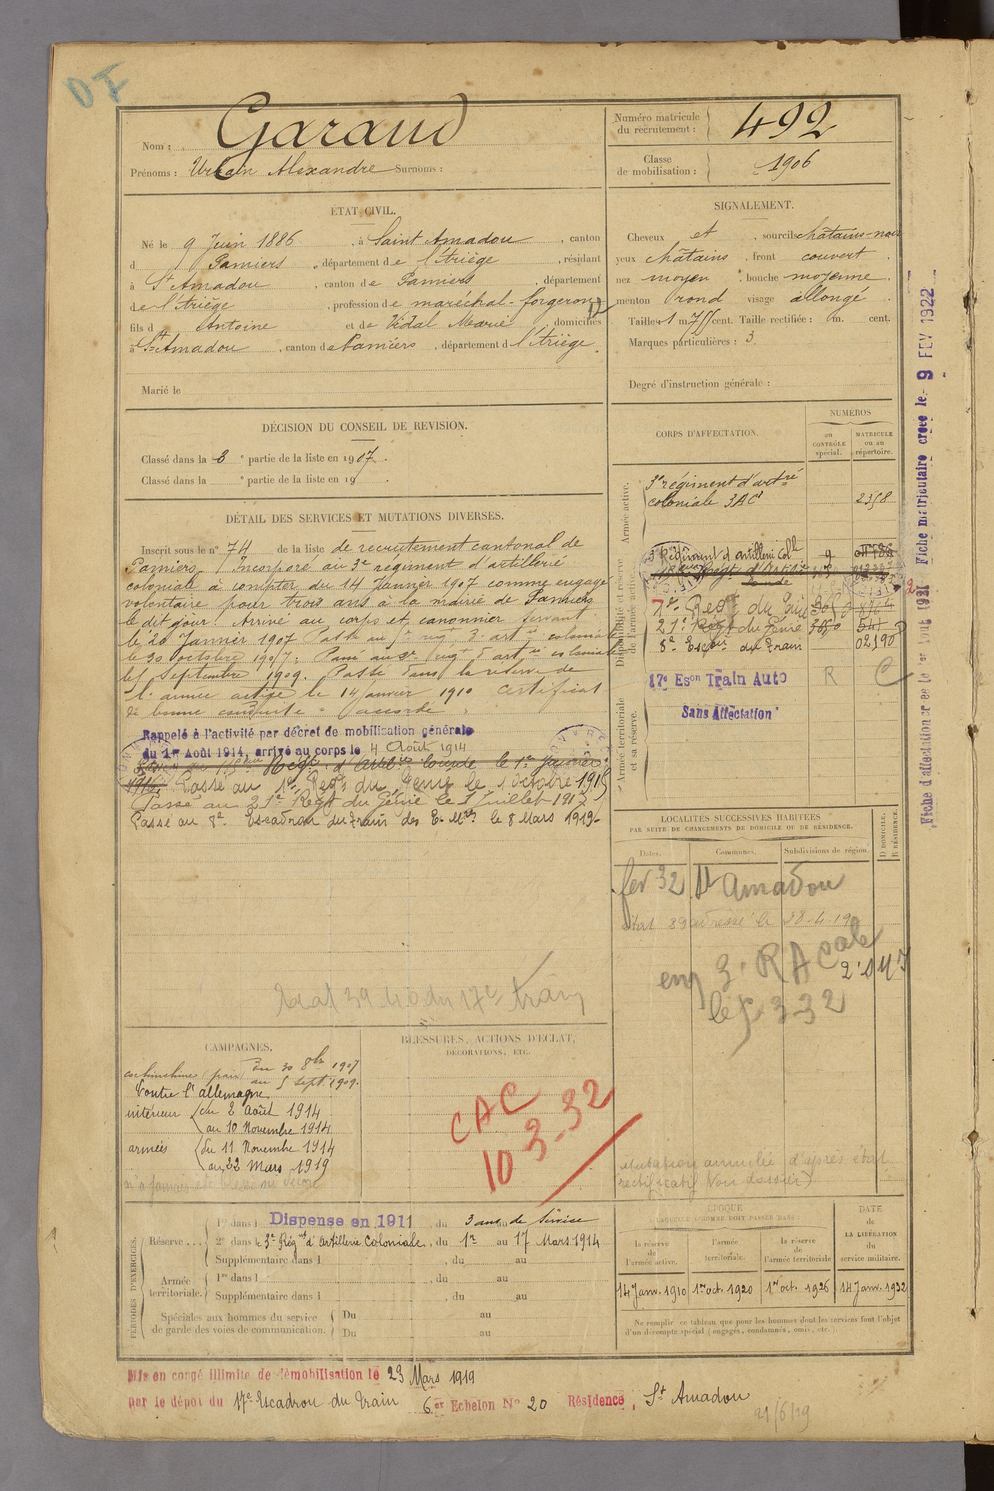 Nom : Garaud
Prénoms : Urbain Alexandre Surnoms :
Numéro matricule
du recrutement : 492
Classe
de mobilisation : 1906
ÉTAT CIVIL.
Né le 9 Juin 1886, à Saint Amadou, canton
d Pamiers, département de l'Ariège, résidant
à St Amadou, canton de Pamiers, département
de l'Ariège, profession de maréchal-forgeron
fils d Antoine et de Vidal Marie domiciliés
à St Amadou, canton de Pamiers, département d l'Ariège.
Marié le
SIGNALEMENT.
Cheveux et, sourcils châtains-noir
yeux châtains, front couvert
nez moyen, bouche moyenne
menton rond visage allongé
Taille : 1 m. 755 cent. Taille rectifiée : m. cent.
Marques particulières : 3.
Degré d'instruction générale :
DÉCISION DU CONSEIL DE REVISION.
Classé dans la 3e partie de la liste en 1907.
Classé dans la e partie de la liste en 19 .
DÉTAIL DES SERVICES ET MUTATIONS DIVERSES.
Inscrit sous le n° 74 de la liste de recrutement cantonal de
Pamiers. Incorporé au 3e régiment d'artillerie
coloniale à compter du 14 Janvier 1907 comme engagé
volontaire pour trois ans à la mairie de Pamiers
le dit jour. Arrivé au corps et canonnier servant
le 20 Janvier 1907. Passé au rég. d'artie coloniale
le 30 octobre 1907. Passé au regt d'artie coloniale
le 5 Septembre 1909. Passé dans la réserve de
l'armée active le 14 janvier 1910 Certificat
de bonne conduite accordé.
Rappelé à l'activité par décret de mobilisation générale
du 1er Août 1914, arrivé au corps le 4 Août 1914
le 1er Janvier
1916. Passé au 1er Regt du Génie le 1 octobre 1915
Passé au 21e Regt du Génie le 5 Juillet 1917
Passé au 8e Escadron du Train des E. Mres le 8 Mars 1919.
CORPS D'AFFECTATION.
NUMÉROS
au
CONTRÔLE
spécial.
MATRICULE
ou au
répertoire.
Armée active.
3e régiment d'artie
coloniale 3AC 2358
Disponibilité et réserve
de l'armée active.
3e Régiment d'Artillerie Colle
1er Regt du Génie
21e Regt du Génie
8e Escon du Train 02190
17e Eson Train Auto R C
Sans Affectation
Armée territoriale
et sa réserve.
Fiche matriculaire créée le 9 FEV 1922
Fiche d'affectation créée le 1er Août 1921
LOCALITÉS SUCCESSIVES HABITÉES
PAR SUITE DE CHANGEMENTS DE DOMICILE OU DE RÉSIDENCE.
Dates. Communes. Subdivisions de région. D. DOMICILE. R. RÉSIDENCE.
fev 32 St Amadou
adressé le 28-4-19
eng 3e RA Cole
le 5-3-32
17e train
CAMPAGNES.
Cochinchine (paix) du 30 8bre 1907
au 5 Sept. 1909.
Contre l'allemagne
intérieur du 2 Août 1914
au 10 Novembre 1914
armées du 11 Novembre 1914
au 22 Mars 1919
BLESSURES, ACTIONS D'ÉCLAT,
DÉCORATIONS, ETC.
CAC
10 3-32
Mutation annulée d'après état
rectificatif (voir dossier)
PÉRIODES D'EXERCICES.
Réserve...
1re dans l Dispensé en 1911, du 3 ans au de service
2e dans le 3e Régt d'Artillerie Coloniale, du 1er au 17 Mars 1914
Supplémentaire dans l , du au
Armée
territoriale.
1re dans l , du au
Supplémentaire dans l , du au
Spéciales aux hommes du service
de garde des voies de communication.
Du au
Du au
ÉPOQUE
À LAQUELLE L'HOMME DOIT PASSER DANS
la réserve
de
l'armée active.
l'armée
territoriale.
la réserve
de
l'armée territoriale
DATE
de
LA LIBÉRATION
du
service militaire.
14 Janv. 1910 1er oct. 1920 1er oct. 1926 14 Janv. 1932
Ne remplir ce tableau que pour les hommes dont les services font l'objet
d'un décompte spécial (engagés, condamnés, omis, etc.).
Mis en congé illimité de démobilisation le 23 Mars 1919
par le dépôt du 17e Escadron du Train 6e Echelon N° 20 Résidence, St Amadou
21/6/19